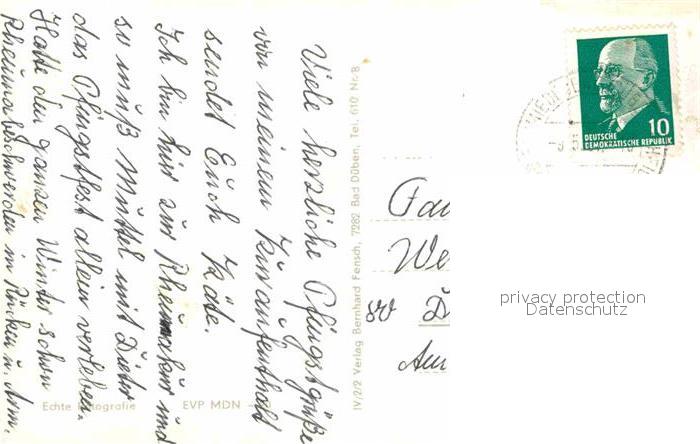 Viele herzliche Pfingstgrüße
von meinem Kuraufenthalt
sendet Euch Käte.
Ich bin hier zur Rheumakur und
so muß Muttel mit Dieter
das Pfingstfest allein verleben.
Hatte den ganzen Winter schon
Rheumabeschwerden in Rücken u. Arm.
IV/2/2 Verlag Bernhard Fensch, 7282 Bad Düben, Tel. 610 Nr. 8
Echte Fotografie
EVP MDN
10
DEUTSCHE
DEMOKRATISCHE REPUBLIK
Fa
We
D
privacy protection
Datenschutz